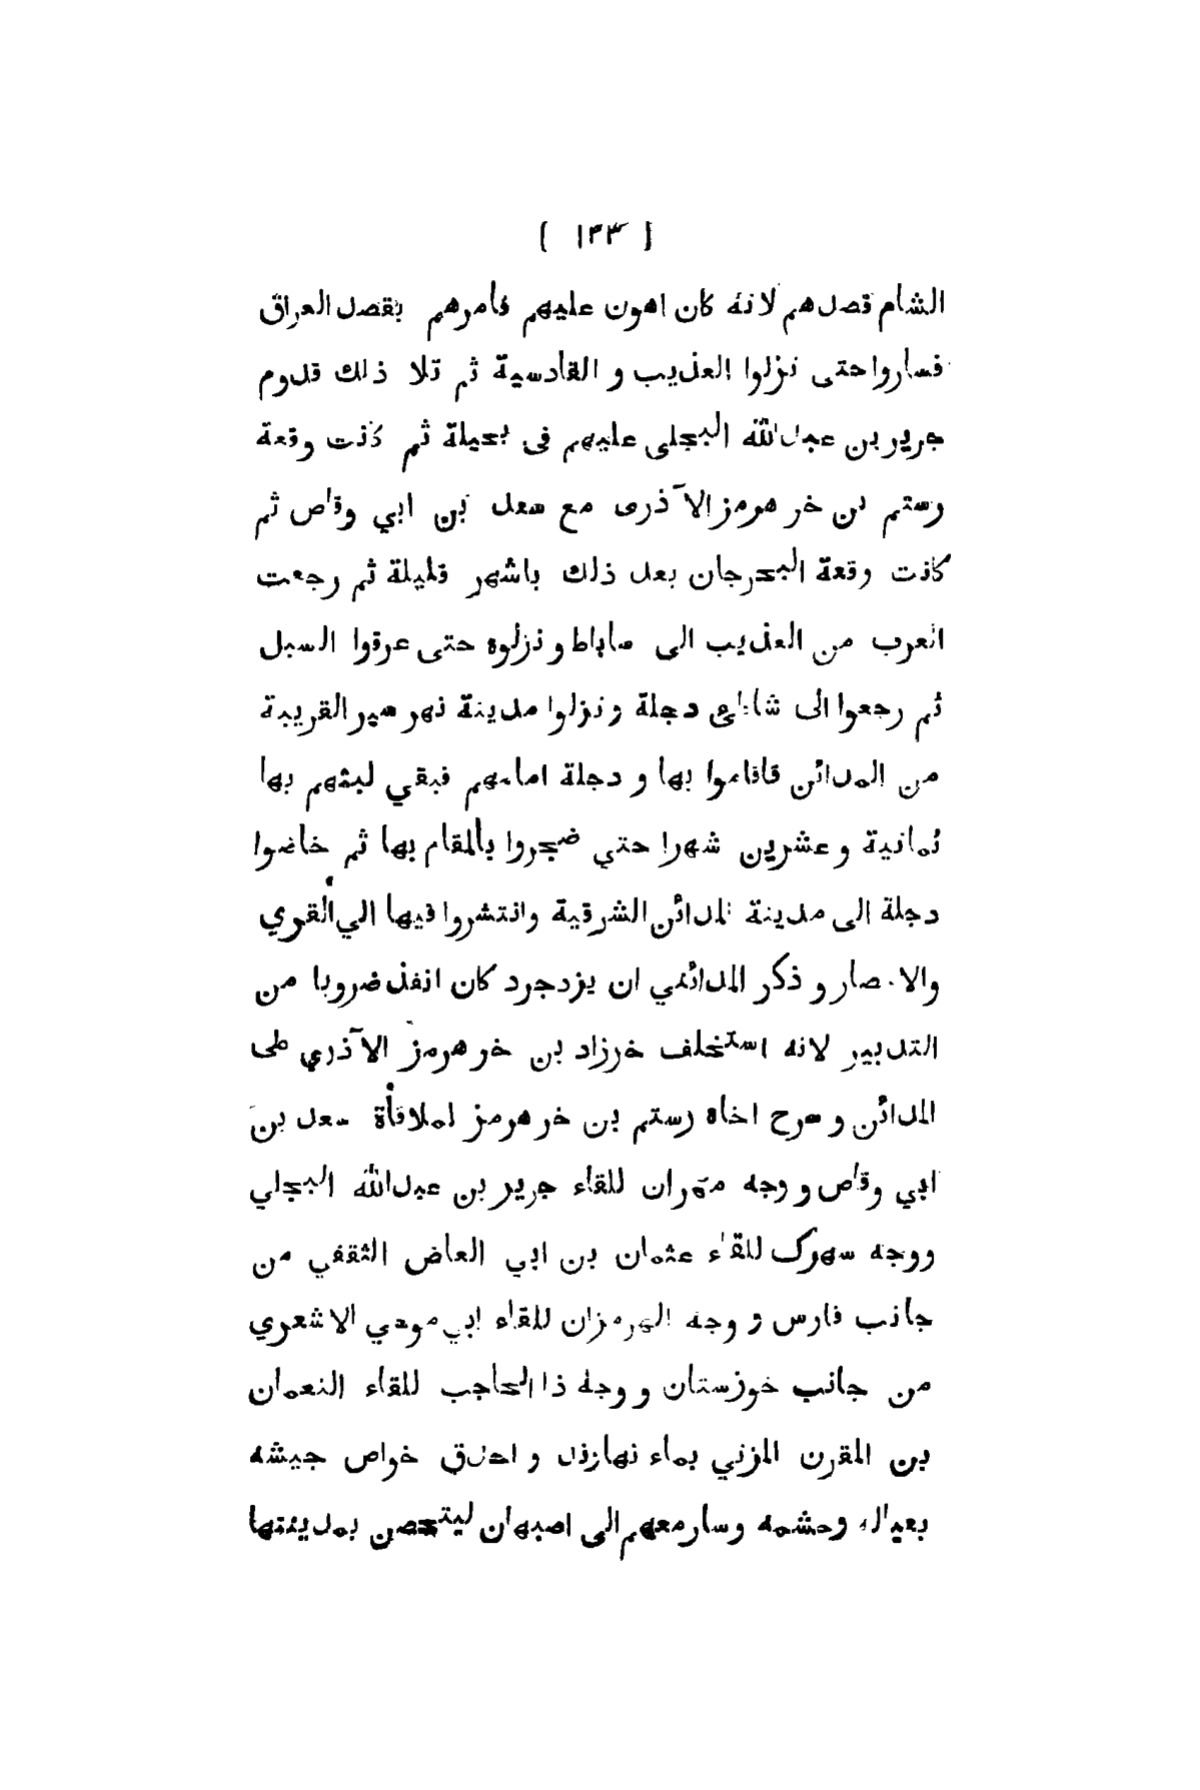 ( ١٣٣ )
الشام قصدهم لانه كان اهون عليهم فأمرهم بقصد العراق
فساروا حتى نزلوا العذيب و القادسية ثم تلا ذلك قدوم
جرير بن عبدالله البجلى عليهم فى بجيلة ثم كانت وقعة
رستم بن خر هرمز الآذرى مع سعد بن ابي وقاص ثم
كانت وقعة البحرجان بعد ذلك باشهر قليلة ثم رجعت
العرب من العذيب الى ساباط و نزلوه حتى عرفوا السبل
ثم رجعوا الى شاطئ دجلة ونزلوا مدينة نهر سير القريبة
من المدائن فاقاموا بها و دجلة امامهم فبقي لبثهم بها
ثمانية و عشرين شهرا حتي ضجروا بالمقام بها ثم خاضوا
دجلة الى مدينة المدائن الشرقية وانتشروا فيها الي القري
والامصار و ذكر المدائني ان يزدجرد كان انفذ ضروبا من
التدبير لانه استخلف خرزاد بن خر هرمز الآذري على
المدائن و سرح اخاه رستم بن خر هرمز لملاقأة سعد بن
ابي وقاص و وجه مهران للقاء جرير بن عبدالله البجلي
ووجه سهرك للقاء عثمان بن ابي العاض الثقفي من
جانب فارس و وجه الهرمزان للقاء ابي موسي الاشعري
من جانب خوزستان و وجه ذا الحاجب للقاء النعمان
بن المقرن المزني بماء نهاوند و احدق خواص جيشه
بعياله وحشمه وسار معهم الى اصبهان ليتحصن بمدينتها